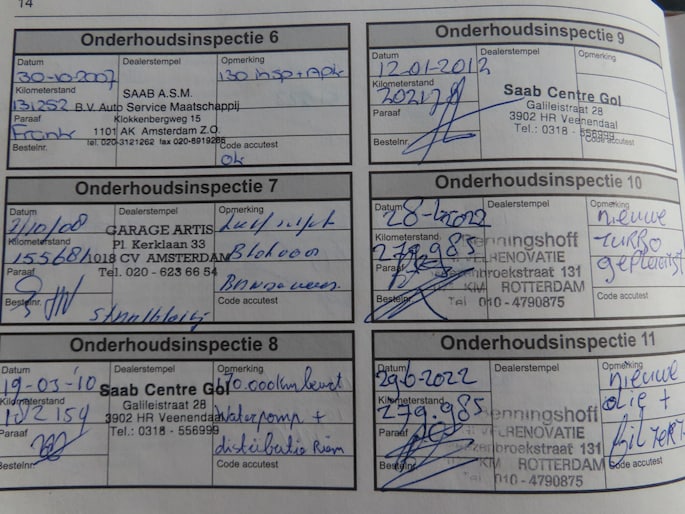 14
Onderhoudsinspectie 6
Datum
Dealerstempel
Opmerking
30-10-2007
130 insp + APK
Kilometerstand
SAAB A.S.M.
131252
B.V. Auto Service Maatschappij
Paraaf
Klokkenbergweg 15
Frank
1101 AK Amsterdam Z.O.
Bestelnr.
tel. 020-3121262 fax 020-6919286
Code accutest
Ok
Onderhoudsinspectie 7
Datum
Dealerstempel
Opmerking
2/10/08
GARAGE ARTIS
Kilometerstand
Pl. Kerklaan 33
155681
1018 CV AMSTERDAM
Paraaf
Tel. 020 - 623 66 54
Bestelnr.
Code accutest
Onderhoudsinspectie 8
Datum
Dealerstempel
Opmerking
19-03-'10
Saab Centre Gol
170.000km beurt
Kilometerstand
Galileistraat 28
3902 HR Veenendaal
waterpomp +
Paraaf
Tel.: 0318 - 556999
distributie Riem
Bestelnr.
Code accutest
Onderhoudsinspectie 9
Datum
Dealerstempel
Opmerking
12-01-2012
Kilometerstand
Saab Centre Gol
Galileistraat 28
Paraaf
3902 HR Veenendaal
Tel.: 0318 - 556999
Bestelnr.
Code accutest
Onderhoudsinspectie 10
Datum
Dealerstempel
Opmerking
2022
nieuwe
Kilometerstand
enningshoff
TURBO
279.985
VELRENOVATIE
geplaatst
Paraaf
enbroekstraat 131
KM ROTTERDAM
Bestelnr.
Tel 010 - 4790875
Code accutest
Onderhoudsinspectie 11
Datum
Dealerstempel
Opmerking
29-6-2022
nieuwe
Kilometerstand
enningshoff
olie +
279.985
VELRENOVATIE
filters
Paraaf
zenbroekstraat 131
KM ROTTERDAM
Bestelnr.
Tel 010 - 4790875
Code accutest